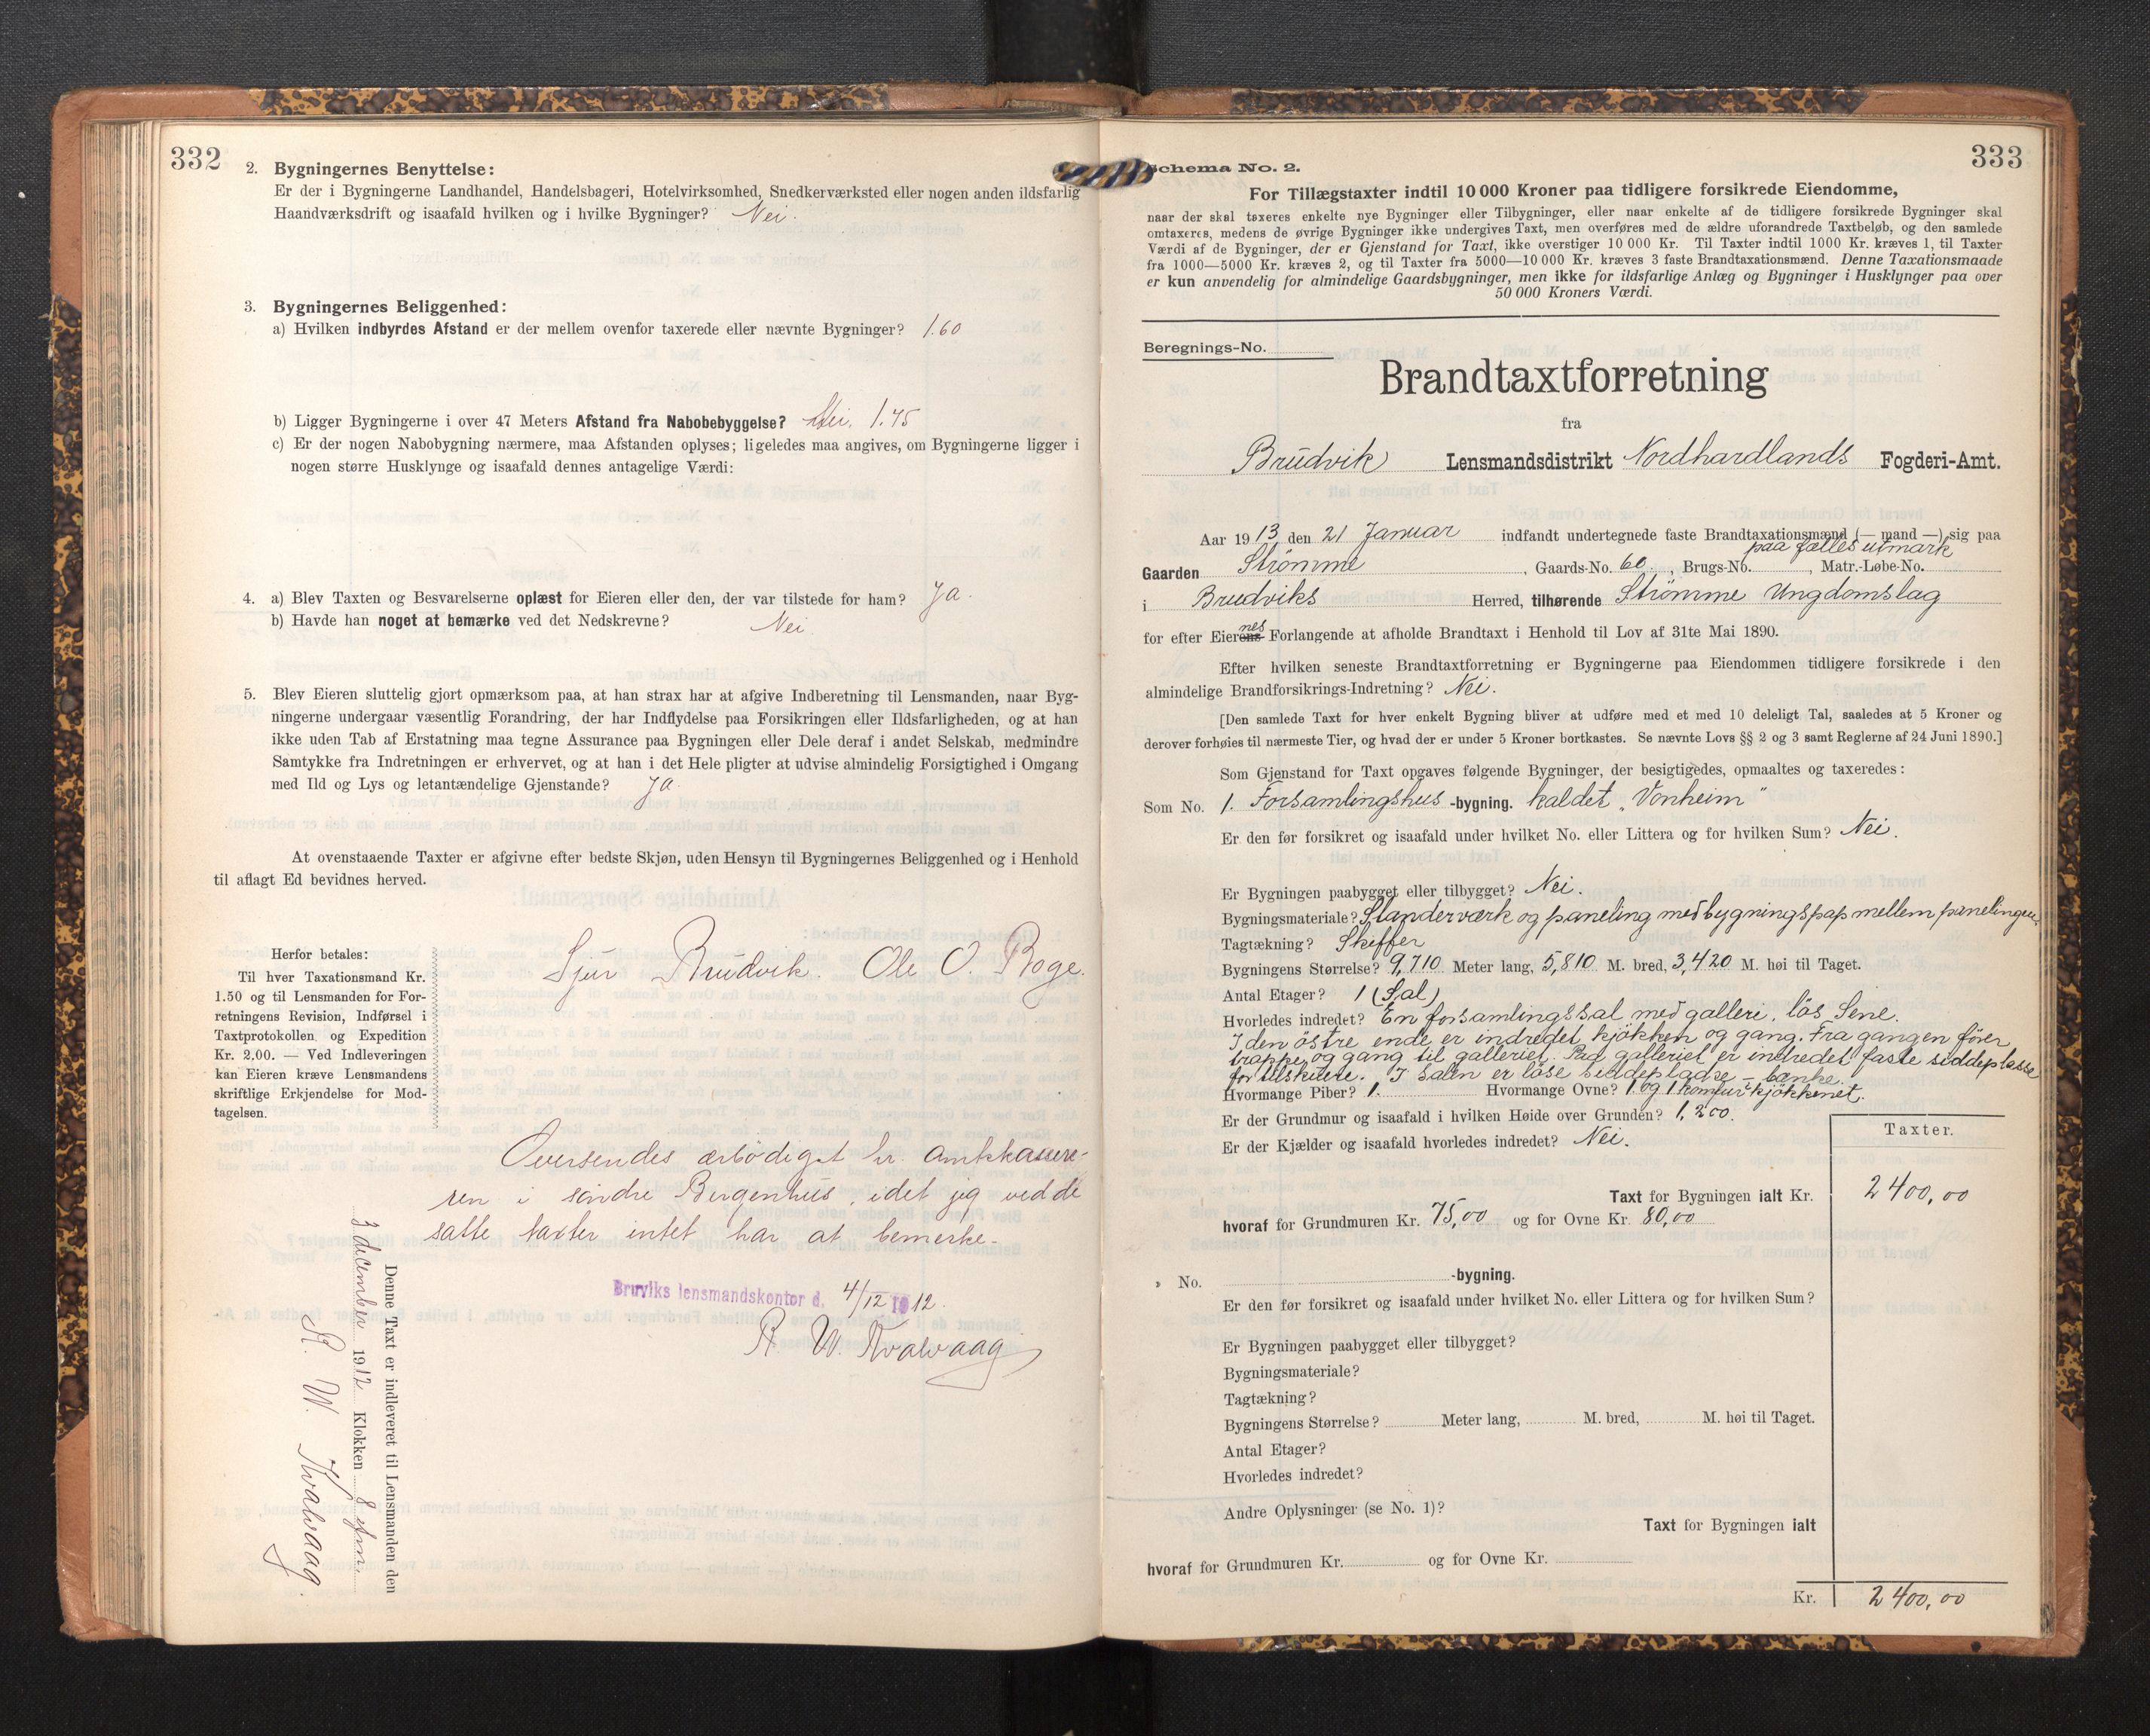 332
2. Bygningernes Benyttelse:
Er der i Bygningerne Landhandel, Handelsbageri, Hotelvirksomhed, Snedkerværksted eller nogen anden ildsfarlig
Haandværksdrift og isaafald hvilken og i hvilke Bygninger? Nei.
3. Bygningernes Beliggenhed:
a) Hvilken indbyrdes Afstand er der mellem ovenfor taxerede eller nævnte Bygninger? 1.60
b) Ligger Bygningerne i over 47 Meters Afstand fra Nabobebyggelse? Nei. 1.45
c) Er der nogen Nabobygning nærmere, maa Afstanden oplyses; ligeledes maa angives, om Bygningerne ligger i
nogen større Husklynge og isaafald dennes antagelige Værdi:
4. a) Blev Taxten og Besvarelserne oplæst for Eieren eller den, der var tilstede for ham? Ja.
b) Havde han noget at bemærke ved det Nedskrevne? Nei
5. Blev Eieren sluttelig gjort opmærksom paa, at han strax har at afgive Indberetning til Lensmanden, naar Byg-
ningerne undergaar væsentlig Forandring, der har Indflydelse paa Forsikringen eller Ildsfarligheden, og at han
ikke uden Tab af Erstatning maa tegne Assurance paa Bygningen eller Dele deraf i andet Selskab, medmindre
Samtykke fra Indretningen er erhvervet, og at han i det Hele pligter at udvise almindelig Forsigtighed i Omgang
med Ild og Lys og letantændelige Gjenstande? Ja.
At ovenstaaende Taxter er afgivne efter bedste Skjøn, uden Hensyn til Bygningernes Beliggenhed og i Henhold
til aflagt Ed bevidnes herved.
Sjur Brudvik. Ole O. Boge.
Herfor betales:
Til hver Taxationsmand Kr.
1.50 og til Lensmanden for For-
retningens Revision, Indførsel i
Taxtprotokollen og Expedition
Kr. 2.00. — Ved Indleveringen
kan Eieren kræve Lensmandens
skriftlige Erkjendelse for Mod-
tagelsen.
Oversendes ærbödigst hr. amtkassere-
ren i söndre Bergenhus, idet jeg ved de
satte taxter intet har at bemerke.
Bruviks lensmandskontor d. 4/12 1912.
R. W. Kvalvaag
Denne Taxt er indleveret til Lensmanden den
3 december 1912 Klokken 8 efm.
R. W. Kvalvaag.
333
Schema No. 2.
For Tillægstaxter indtil 10 000 Kroner paa tidligere forsikrede Eiendomme,
naar der skal taxeres enkelte nye Bygninger eller Tilbygninger, eller naar enkelte af de tidligere forsikrede Bygninger skal
omtaxeres, medens de øvrige Bygninger ikke undergives Taxt, men overføres med de ældre uforandrede Taxtbeløb, og den samlede
Værdi af de Bygninger, der er Gjenstand for Taxt, ikke overstiger 10 000 Kr. Til Taxter indtil 1000 Kr. kræves 1, til Taxter
fra 1000—5000 Kr. kræves 2, og til Taxter fra 5000—10 000 Kr. kræves 3 faste Brandtaxationsmænd. Denne Taxationsmaade
er kun anvendelig for almindelige Gaardsbygninger, men ikke for ildsfarlige Anlæg og Bygninger i Husklynger paa over
50 000 Kroners Værdi.
Beregnings-No.
Brandtaxtforretning
fra
Brudvik Lensmandsdistrikt Nordhordlands Fogderi-Amt.
Aar 1913 den 21 Januar indfandt undertegnede faste Brandtaxationsmænd (— mand —) sig paa
paa fælles utmark
Gaarden Strömme, Gaards-No. 60, Brugs-No. , Matr.-Løbe-No.
i Brudviks Herred, tilhørende Strömme Ungdomslag
for efter Eierens nes Forlangende at afholde Brandtaxt i Henhold til Lov af 31te Mai 1890.
Efter hvilken seneste Brandtaxtforretning er Bygningerne paa Eiendommen tidligere forsikrede i den
almindelige Brandforsikrings-Indretning? Nei.
[Den samlede Taxt for hver enkelt Bygning bliver at udføre med et med 10 deleligt Tal, saaledes at 5 Kroner og
derover forhøies til nærmeste Tier, og hvad der er under 5 Kroner bortkastes. Se nævnte Lovs §§ 2 og 3 samt Reglerne af 24 Juni 1890.]
Som Gjenstand for Taxt opgaves følgende Bygninger, der besigtigedes, opmaaltes og taxeredes:
Som No. 1. Forsamlingshus -bygning. kaldet „Vonheim"
Er den før forsikret og isaafald under hvilket No. eller Littera og for hvilken Sum? Nei.
Er Bygningen paabygget eller tilbygget? Nei.
Bygningsmateriale? Standerværk og paneling med bygningspap mellem panelingen.
Tagtækning? Skiffer
Bygningens Størrelse? 9,710 Meter lang, 5,810 M. bred, 3,420 M. høi til Taget.
Antal Etager? 1 (Sal)
Hvorledes indredet? En forsamlingssal med galleri, lös Sene.
I den östre ende er indredet kjökken og gang. Fra gangen förer
trappe og gang til galleriet. Paa galleriet er indredet faste siddeplasse
for tilskuere. I salen er löse siddepladse - bænke.
Hvormange Piber? 1. Hvormange Ovne? 1 og 1 komfur i kjökkenet.
Er der Grundmur og isaafald i hvilken Høide over Grunden? 1,200.
Er der Kjælder og isaafald hvorledes indredet? Nei.
Taxter.
Taxt for Bygningen ialt Kr. 2400,00
hvoraf for Grundmuren Kr. 75,00 og for Ovne Kr. 80,00
» No. -bygning.
Er den før forsikret og isaafald under hvilket No. eller Littera og for hvilken Sum?
Er Bygningen paabygget eller tilbygget?
Bygningsmateriale?
Tagtækning?
Bygningens Størrelse? Meter lang, M. bred, M. høi til Taget.
Antal Etager?
Hvorledes indredet?
Andre Oplysninger (se No. 1)?
Taxt for Bygningen ialt
hvoraf for Grundmuren Kr. og for Ovne Kr.
Kr. 2400,00